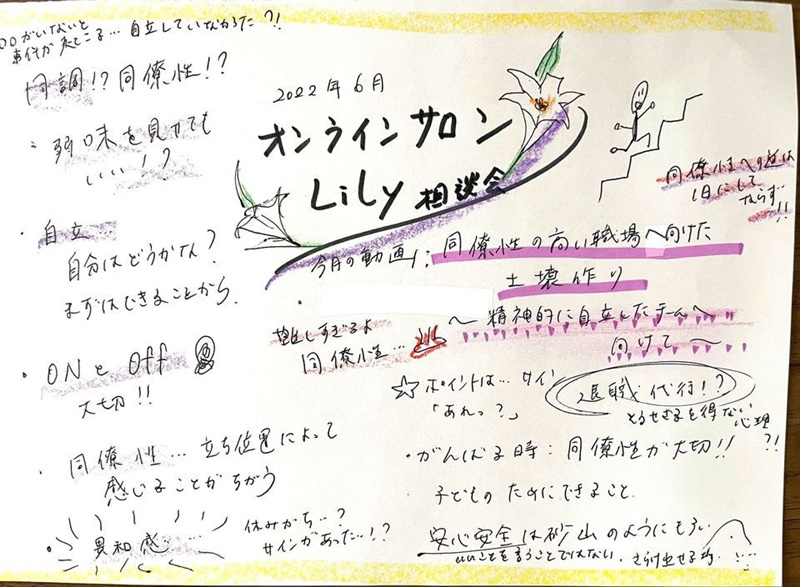 〇〇がいないと
事件が起こる… 自立していなかった?!
同調!? 同僚性!?
弱味を見せても
いい!?
・自立…
自分はどうかな?
まずはできることから
・ONとOff
大切!!
・同僚性…立ち位置によって
感じることがちがう
・異和感…
休みがち…?
サインがあった…!?
2022年6月
オンラインサロン
Lily 相談会
同僚性への道は
1日にして
ならず!!
今月の動画: 同僚性の高い職場へ向けた
土壌作り
〜精神的に自立したチームへ
向けて〜
難しすぎるよ
同僚性…
☆ポイントは…サイン
「あれっ?」
退職代行!?
とるせざるを得ない
心理
?!
・がんばる時:同僚性が大切!!
子どものためにできること
安心安全は砂山のようにもろい
いいことを言うことではない、さらけ出せる